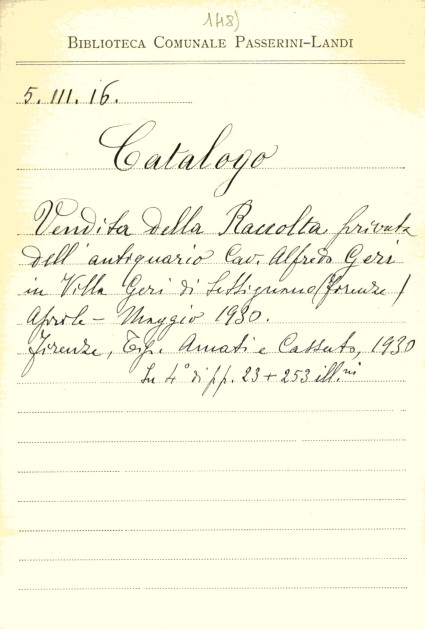 148)
BIBLIOTECA COMUNALE PASSERINI-LANDI
5. III. 16.
Catalogo
Vendita della Raccolta privata
dell'antiquario Cav. Alfredo Geri
in Villa Geri di Settignano (Firenze)
Aprile - Maggio 1930.
Firenze, Tip. Amati e Cassuto, 1930
In 4° di pp. 23 + 253 ill.ni